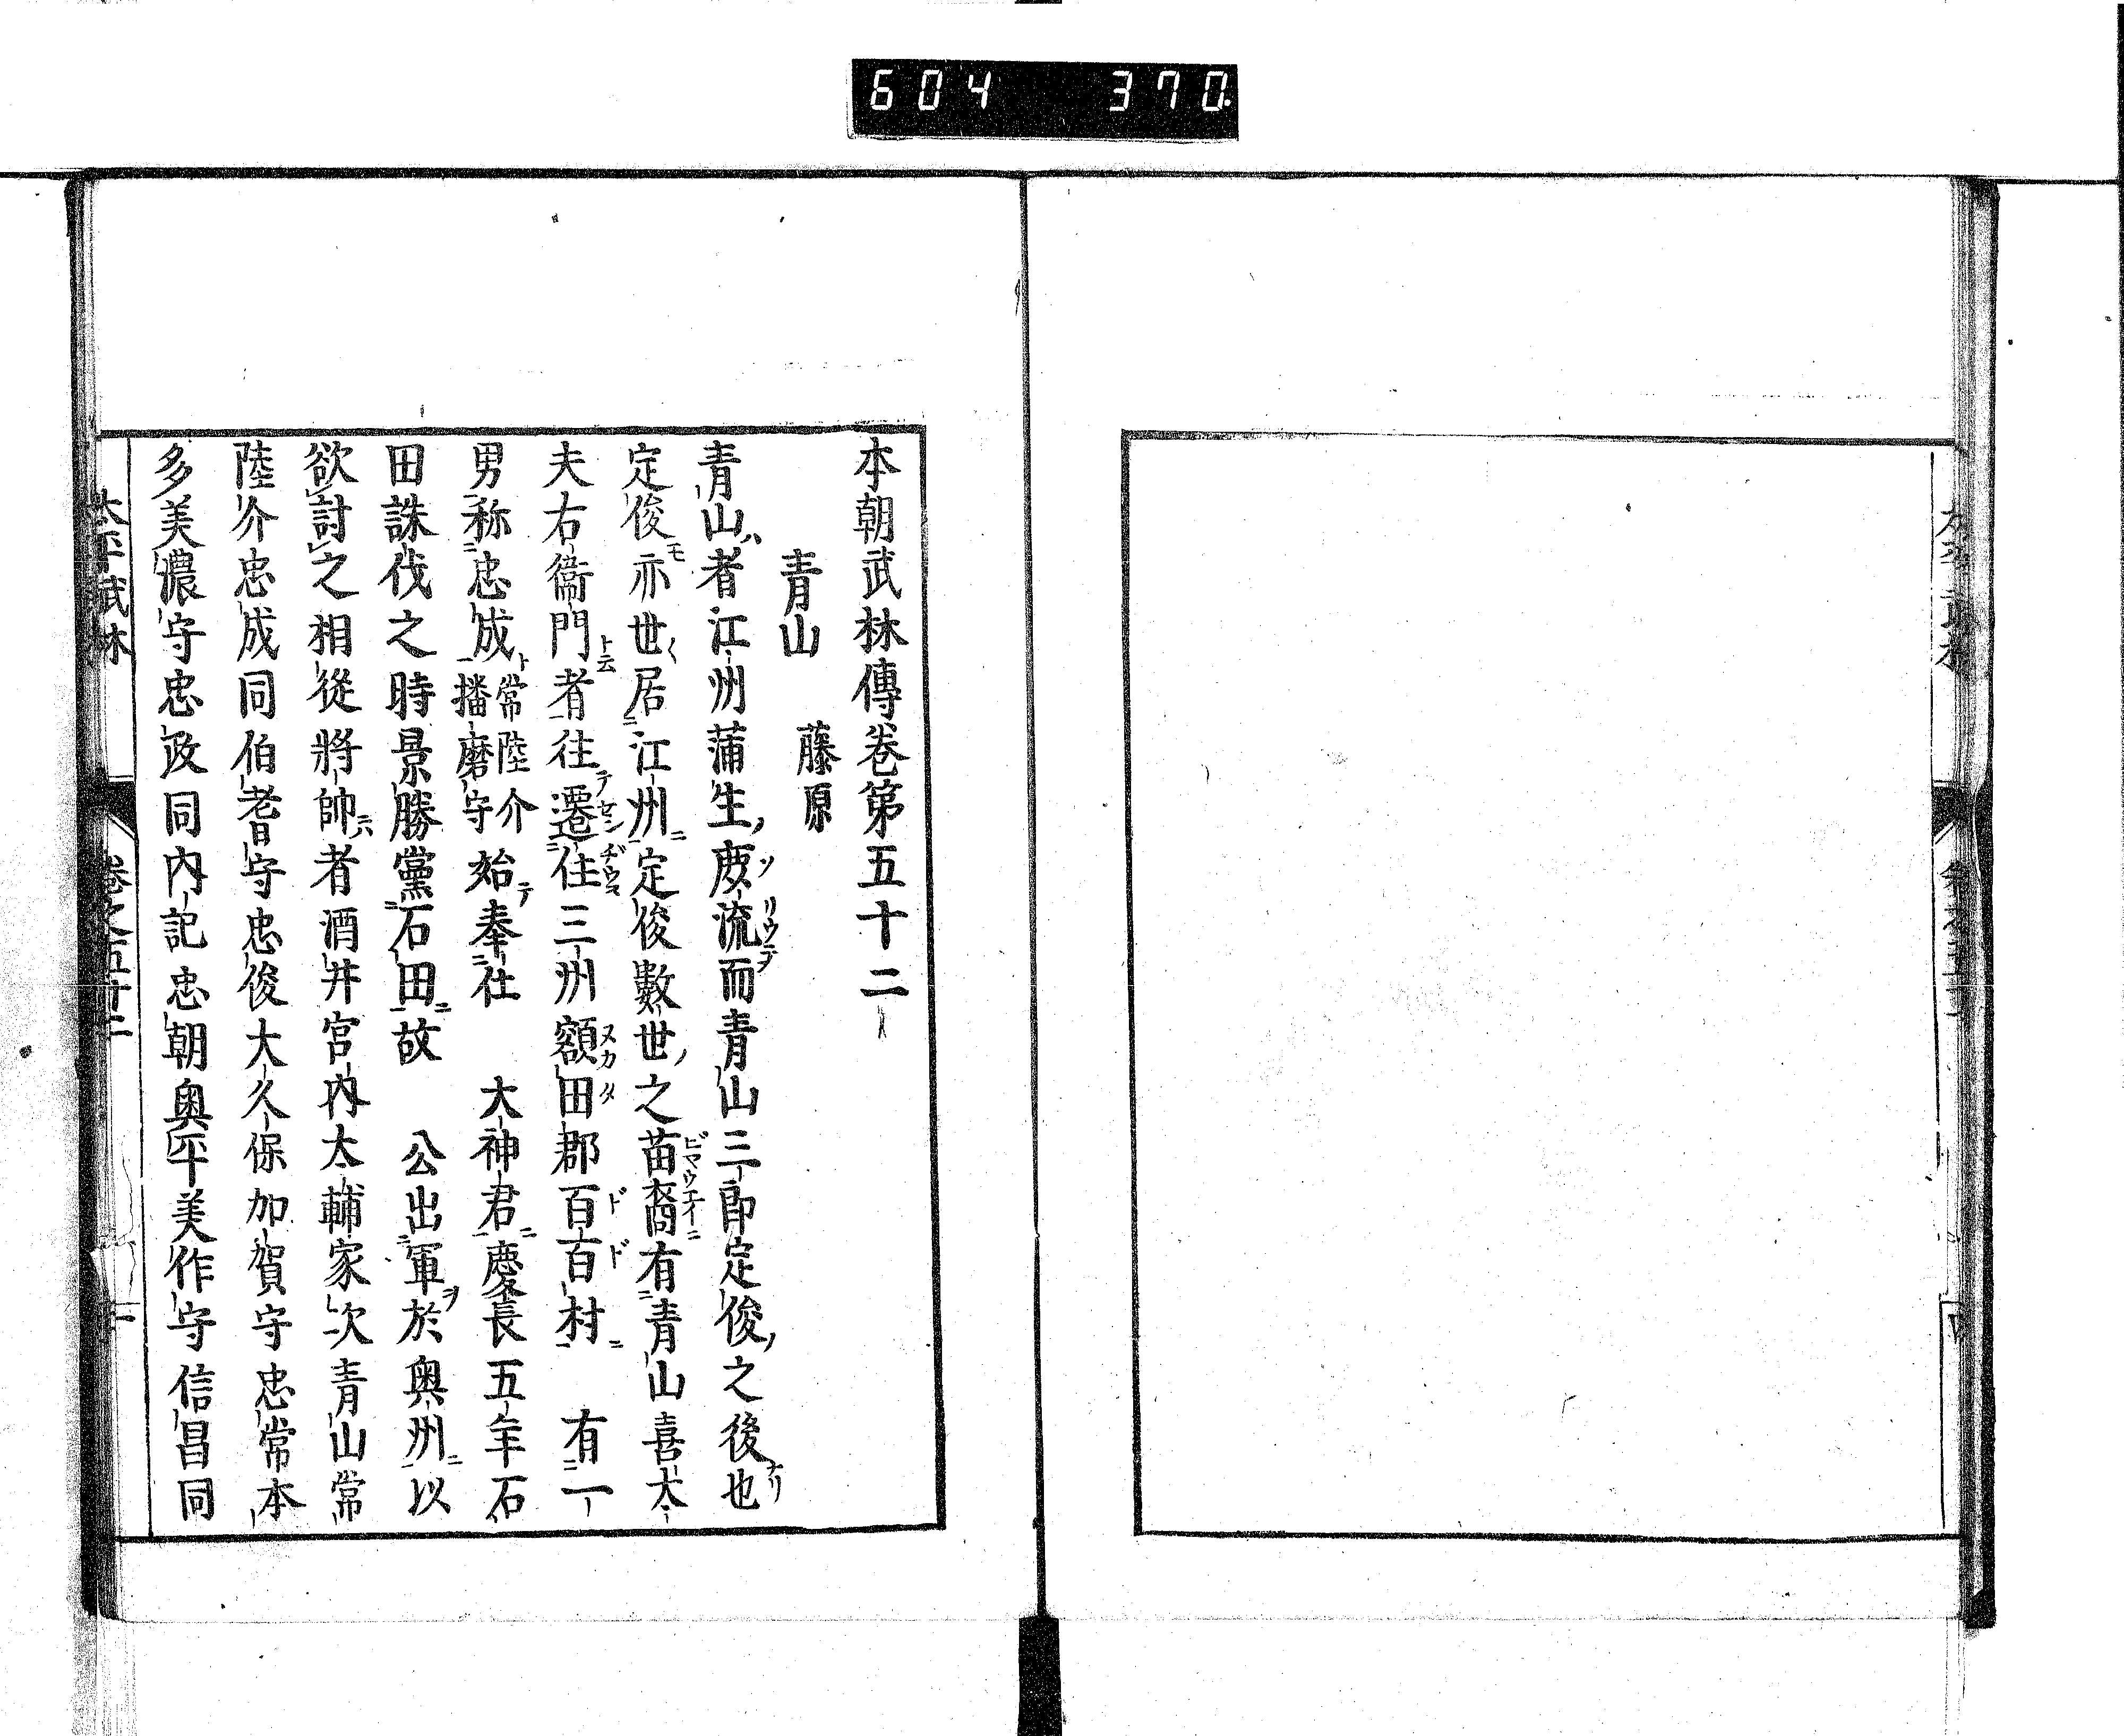 604 370
本朝武林傳卷第五十二
青山 藤原
青山者江州蒲生庶流而青山三郎定俊之後也
定俊亦世〱居江州定俊數世之苗裔有青山喜太
夫右衞門者往遷住三州額田郡百百村 有一
男称忠成常陸介播磨守始奉仕 大神君慶長五年石
田誅伐之時景勝黨石田故 公出軍於奥州以
欲討之相從將帥者酒井宮内太輔家次青山常
陸介忠成同伯耆守忠俊大久保加賀守忠常本
多美濃守忠政同内記忠朝奥平美作守信昌同
太平武林 卷之五十二